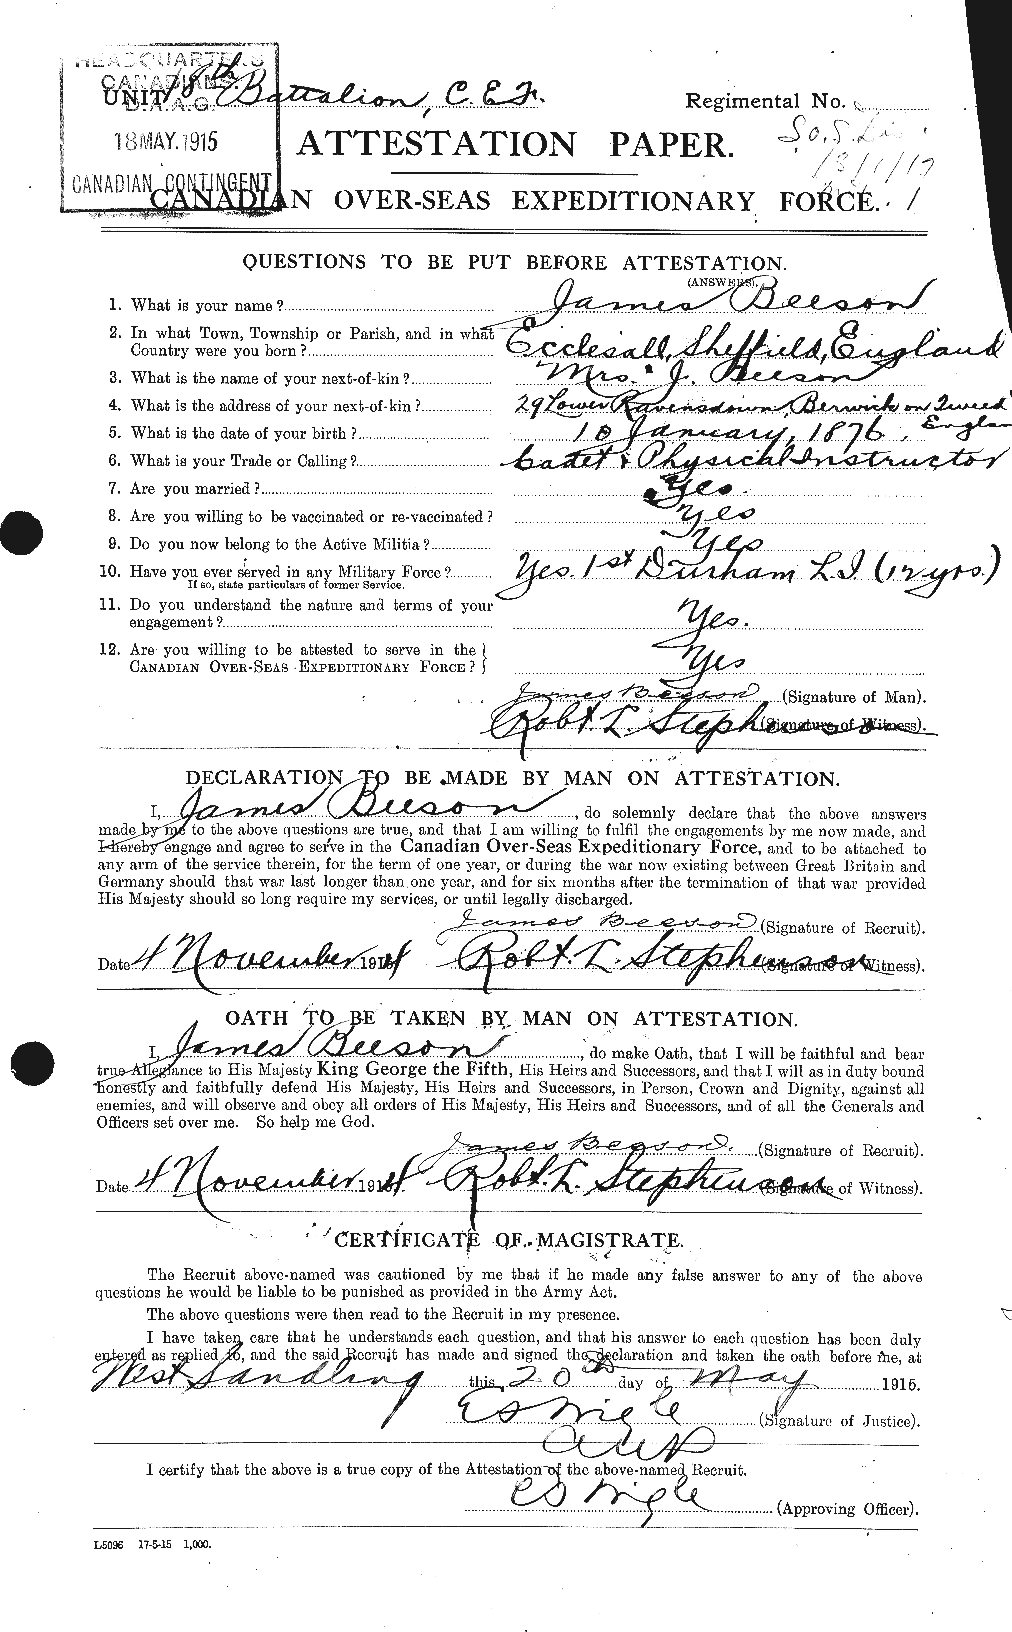 HEADQUARTERS
CANADIANS.
D.A.A.G.
18 MAY. 1915
CANADIAN CONTINGENT
UNIT 18th Battalion, C.E.F.
Regimental No.
ATTESTATION PAPER.
13/1/17
CANADIAN OVER-SEAS EXPEDITIONARY FORCE.
QUESTIONS TO BE PUT BEFORE ATTESTATION.
(ANSWERS).
1. What is your name? James Beeson
2. In what Town, Township or Parish, and in what
Country were you born? Ecclesall, Sheffield, England
3. What is the name of your next-of-kin? Mrs. J. Beeson
4. What is the address of your next-of-kin? 29 Lower Ravensdown, Berwick on Tweed
England
5. What is the date of your birth? 10 January, 1876.
6. What is your Trade or Calling? Cadet & Physical Instructor
7. Are you married? Yes.
8. Are you willing to be vaccinated or re-vaccinated? Yes
9. Do you now belong to the Active Militia? Yes
10. Have you ever served in any Military Force? Yes. 1st Durham L.I. (12 yrs.)
If so, state particulars of former Service.
11. Do you understand the nature and terms of your
engagement? Yes.
12. Are you willing to be attested to serve in the
CANADIAN OVER-SEAS EXPEDITIONARY FORCE? Yes
James Beeson (Signature of Man).
Robt. L. Stephenson (Signature of Witness).
DECLARATION TO BE MADE BY MAN ON ATTESTATION.
I, James Beeson, do solemnly declare that the above answers
made by me to the above questions are true, and that I am willing to fulfil the engagements by me now made, and
I hereby engage and agree to serve in the Canadian Over-Seas Expeditionary Force, and to be attached to
any arm of the service therein, for the term of one year, or during the war now existing between Great Britain and
Germany should that war last longer than one year, and for six months after the termination of that war provided
His Majesty should so long require my services, or until legally discharged.
James Beeson (Signature of Recruit).
Date 4 November 1914 Robt. L. Stephenson (Signature of Witness).
OATH TO BE TAKEN BY MAN ON ATTESTATION.
I, James Beeson, do make Oath, that I will be faithful and bear
true Allegiance to His Majesty King George the Fifth, His Heirs and Successors, and that I will as in duty bound
honestly and faithfully defend His Majesty, His Heirs and Successors, in Person, Crown and Dignity, against all
enemies, and will observe and obey all orders of His Majesty, His Heirs and Successors, and of all the Generals and
Officers set over me. So help me God.
James Beeson. (Signature of Recruit).
Date 4 November 1914 Robt. L. Stephenson (Signature of Witness).
CERTIFICATE OF MAGISTRATE.
The Recruit above-named was cautioned by me that if he made any false answer to any of the above
questions he would be liable to be punished as provided in the Army Act.
The above questions were then read to the Recruit in my presence.
I have taken care that he understands each question, and that his answer to each question has been duly
entered as replied to, and the said Recruit has made and signed the declaration and taken the oath before me, at
West Sandling this 20th day of May 1915.
E S Wigle (Signature of Justice).
I certify that the above is a true copy of the Attestation of the above-named Recruit.
E S Wigle (Approving Officer).
L5096 17-5-15 1,000.